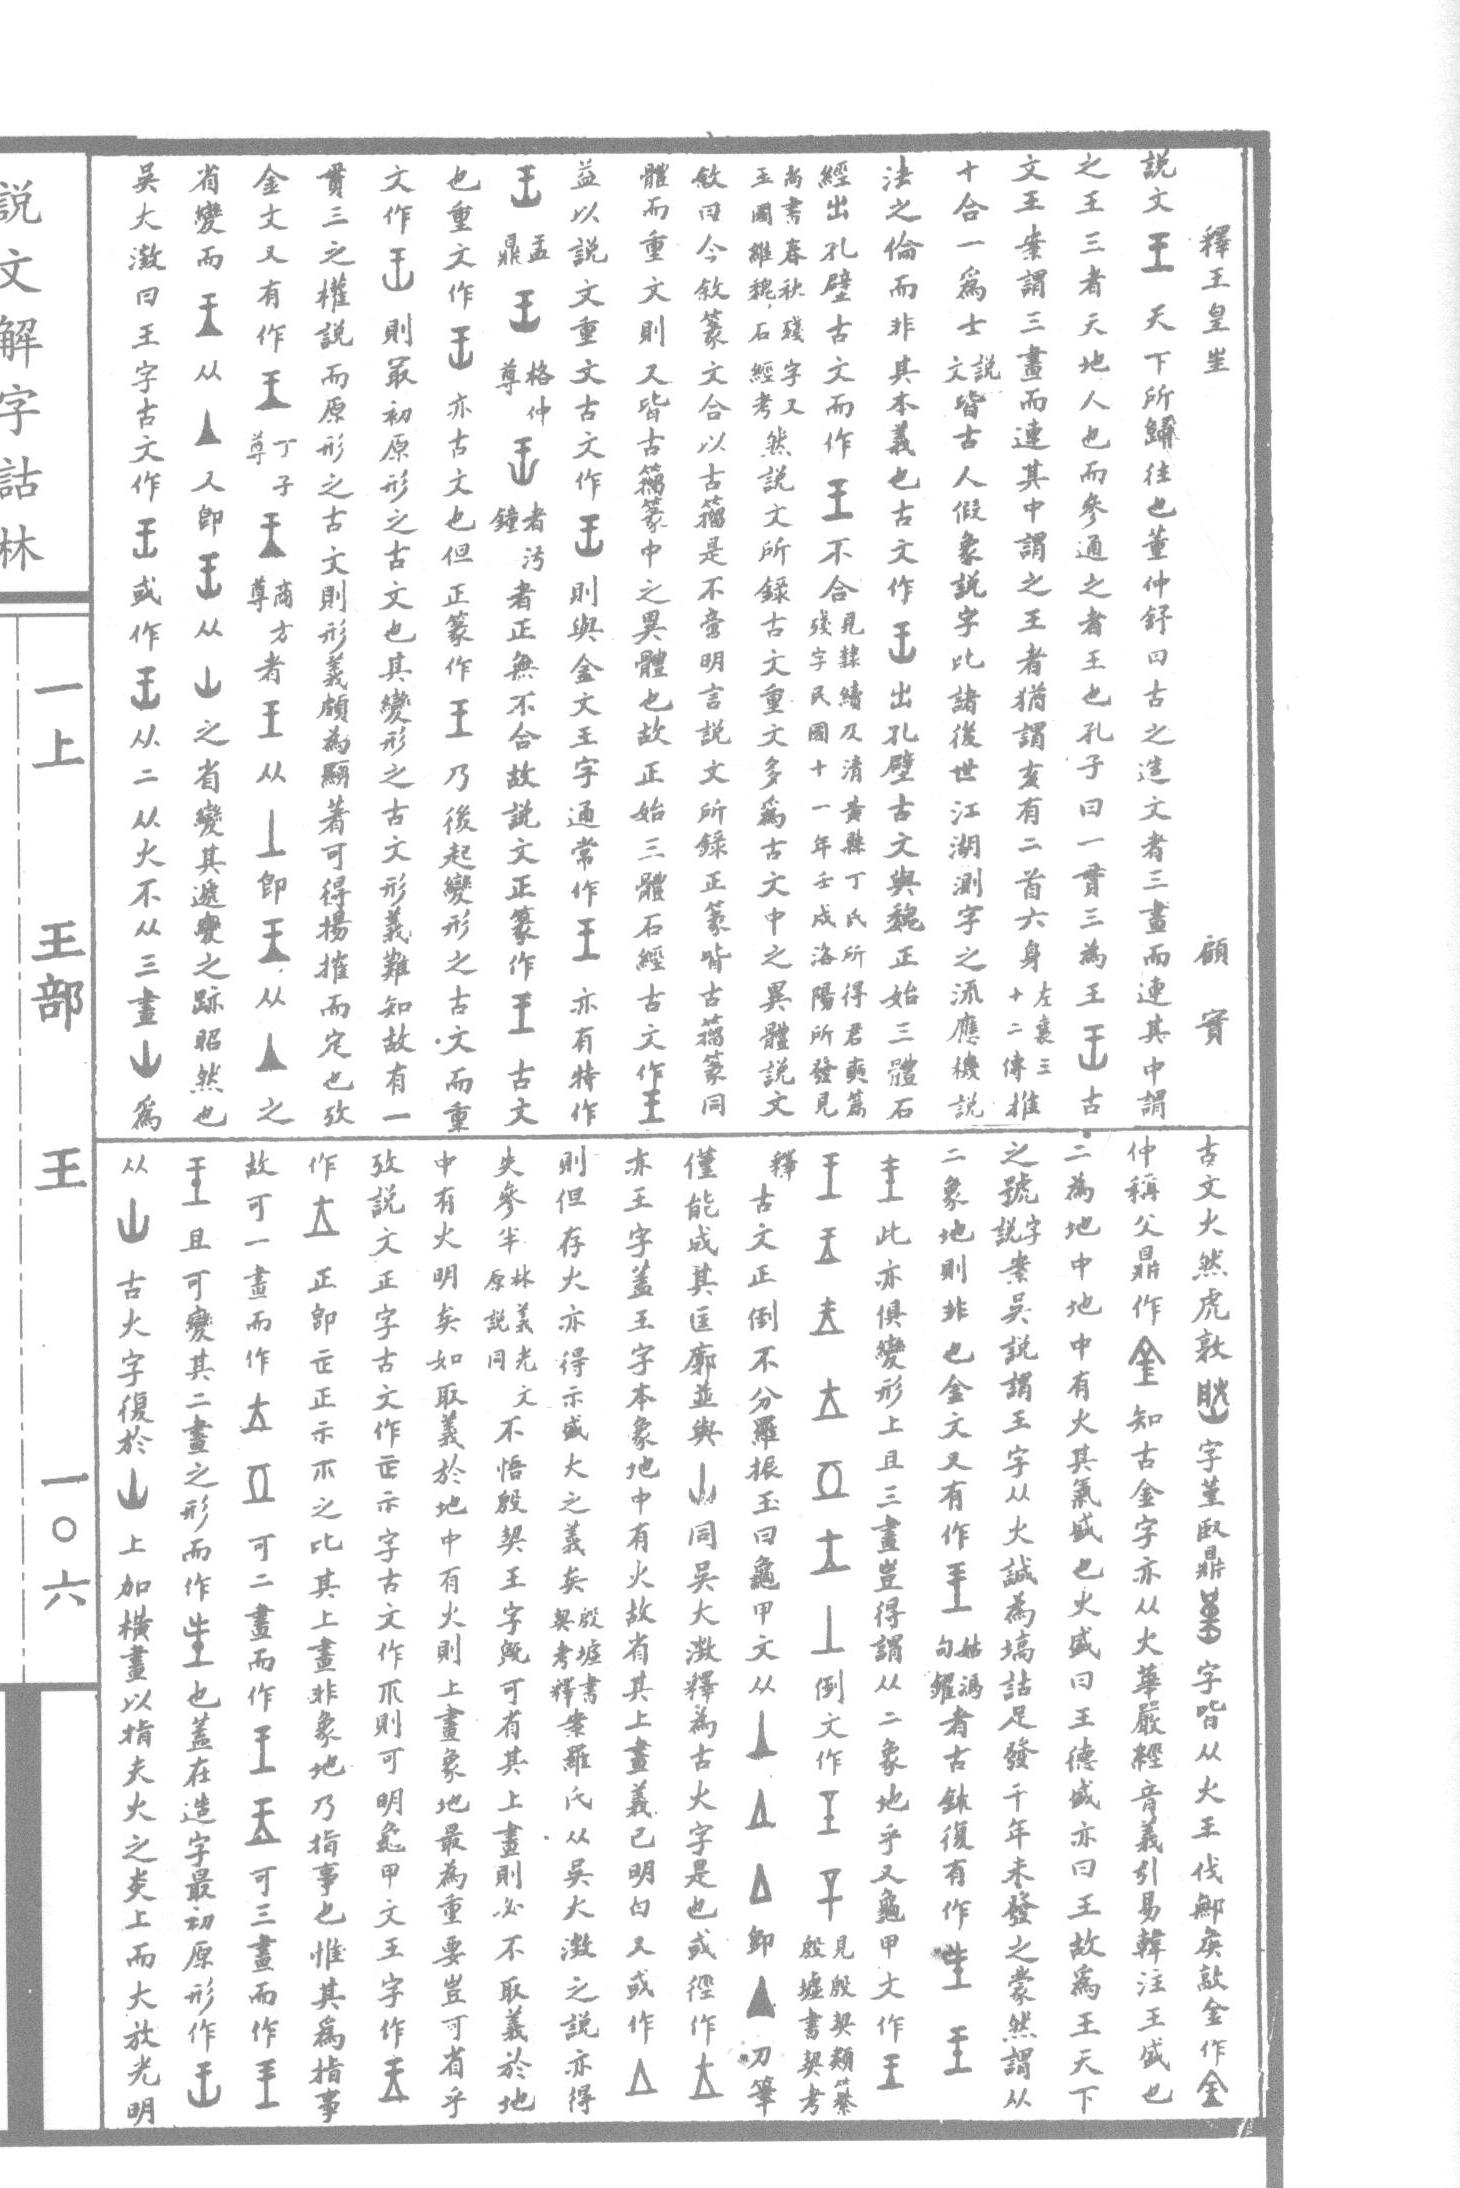 釋王皇𡉚　　　　　顧實
説文王天下所歸往也董仲舒曰古之造文者三畫而連其中謂
之王三者天地人也而參通之者王也孔子曰一貫三為王古
文王案謂三畫而連其中謂之王者猶謂亥有二首六身左襄三十二傳推
十合一爲士説文皆古人假象説字比諸後世江湖測字之流應機説
法之倫而非其本義也古文作出孔壁古文與魏正始三體石
經出孔壁古文而作王不合見隸續及清黄縣丁氏所得君奭篇殘字民國十一年壬戌洛陽所發見
尚書春秋殘字又王國維魏石經考然説文所錄古文重文多爲古文中之異體説文
敘曰今敘篆文合以古籀是不啻明言説文所錄正篆皆古籀篆同
體而重文則又皆古籀篆中之異體也故正始三體石經古文作王
益以説文重文古文作則與金文王字通常作王亦有特作
盂鼎格仲尊者汈鐘者正無不合故説文正篆作王古文
也重文作亦古文也但正篆作王乃後起變形之古文而重
文作則最初原形之古文也其變形之古文形義難知故有一
貫三之權説而原形之古文則形義頗為顯著可得揚搉而定也攷
金文又有作丁子尊商方尊者王从即从之
省變而从又即从之省變其遞變之跡昭然也
吳大澂曰王字古文作或作从二从火不从三畫爲
古文火然虎敦字堇臤鼎字皆从火王伐鄦矦敦金作
仲稱父鼎作知古金字亦从火華嚴經音義引易韓注王盛也
二為地中地中有火其氣盛也火盛曰王德盛亦曰王故爲王天下
之號字説案吳説謂王字从火誠為塙詁足發千年未發之蒙然謂从
二象地則非也金文又有作姑馮句鑃者古鉢復有作
此亦俱變形上且三畫豈得謂从二象地乎又龜甲文作
倒文作見殷契類纂殷墟書契考
釋古文正倒不分羅振玉曰龜甲文从即刀筆
僅能成其匡廓並與同吳大澂釋為古火字是也或徑作
亦王字蓋王字本象地中有火故省其上畫義已明白又或作
則但存火亦得示盛大之義矣殷墟書契考釋案羅氏从吳大澂之説亦得
失參半林義光文原説同不悟殷契王字旣可省其上畫則必不取義於地
中有火明矣如取義於地中有火則上畫象地最為重要豈可省乎
攷説文正字古文作𤴓示字古文作𥘅則可明龜甲文王字作
作正即𤴓正示𥘅之比其上畫非象地乃指事也惟其爲指事
故可一畫而作可二畫而作可三畫而作
且可變其二畫之形而作也蓋在造字最初原形作
从古火字復於上加橫畫以指夫火之炎上而大放光明
説文解字詁林
一上　王部　王　一〇六